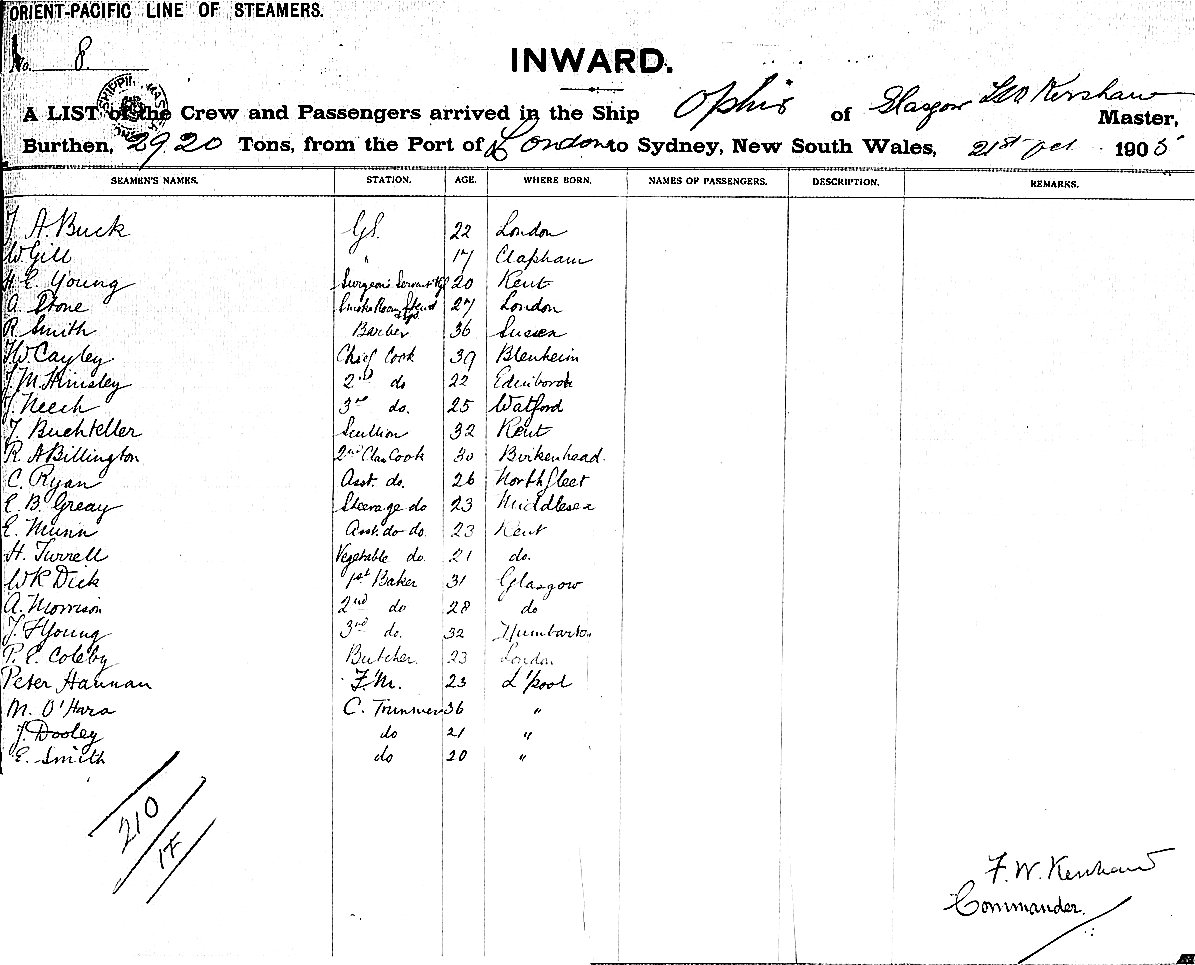 ORIENT-PACIFIC LINE OF STEAMERS.
No. 8.
INWARD.
A LIST of the Crew and Passengers arrived in the Ship Ophir of Glasgow Kershaw Master,
Burthen, 2920 Tons, from the Port of London to Sydney, New South Wales, 21st Oct 1905
SEAMEN'S NAMES. STATION. AGE. WHERE BORN. NAMES OF PASSENGERS. DESCRIPTION. REMARKS.
J. A. Buck G.S. 22 London
W Gill " 17 Clapham
H. E. Young Surgeon's Servant 20 Kent
A. Stone Smoke Room 27 London
R. Smith Barber 36 Sussex
Cayley Chief Cook 39 Blenheim
J. M. Hinsley 2nd do 22
J. Neech 3rd do. 25 Watford
Scullion 32 Kent
R. A Billington 2nd Class Cook 30 Birkenhead.
C. Ryan Asst. do. 26 Northfleet
E. B. Greay Steerage do 23 Middlesex
E. Munn Asst. do do. 23 Kent
H. Turrell Vegetable do. 21 do.
W R Dick 1st Baker 31 Glasgow
A. Morrison 2nd do 28 do
Young 3rd do. 32
P. E. Coleby Butcher. 23 London
Peter Hannan F.M. 23 L'pool
M. O'Hara C. Trimmer 36 "
J. Dooley do 21 "
E. Smith do 20 "
210
F. W. Kershaw
Commander.